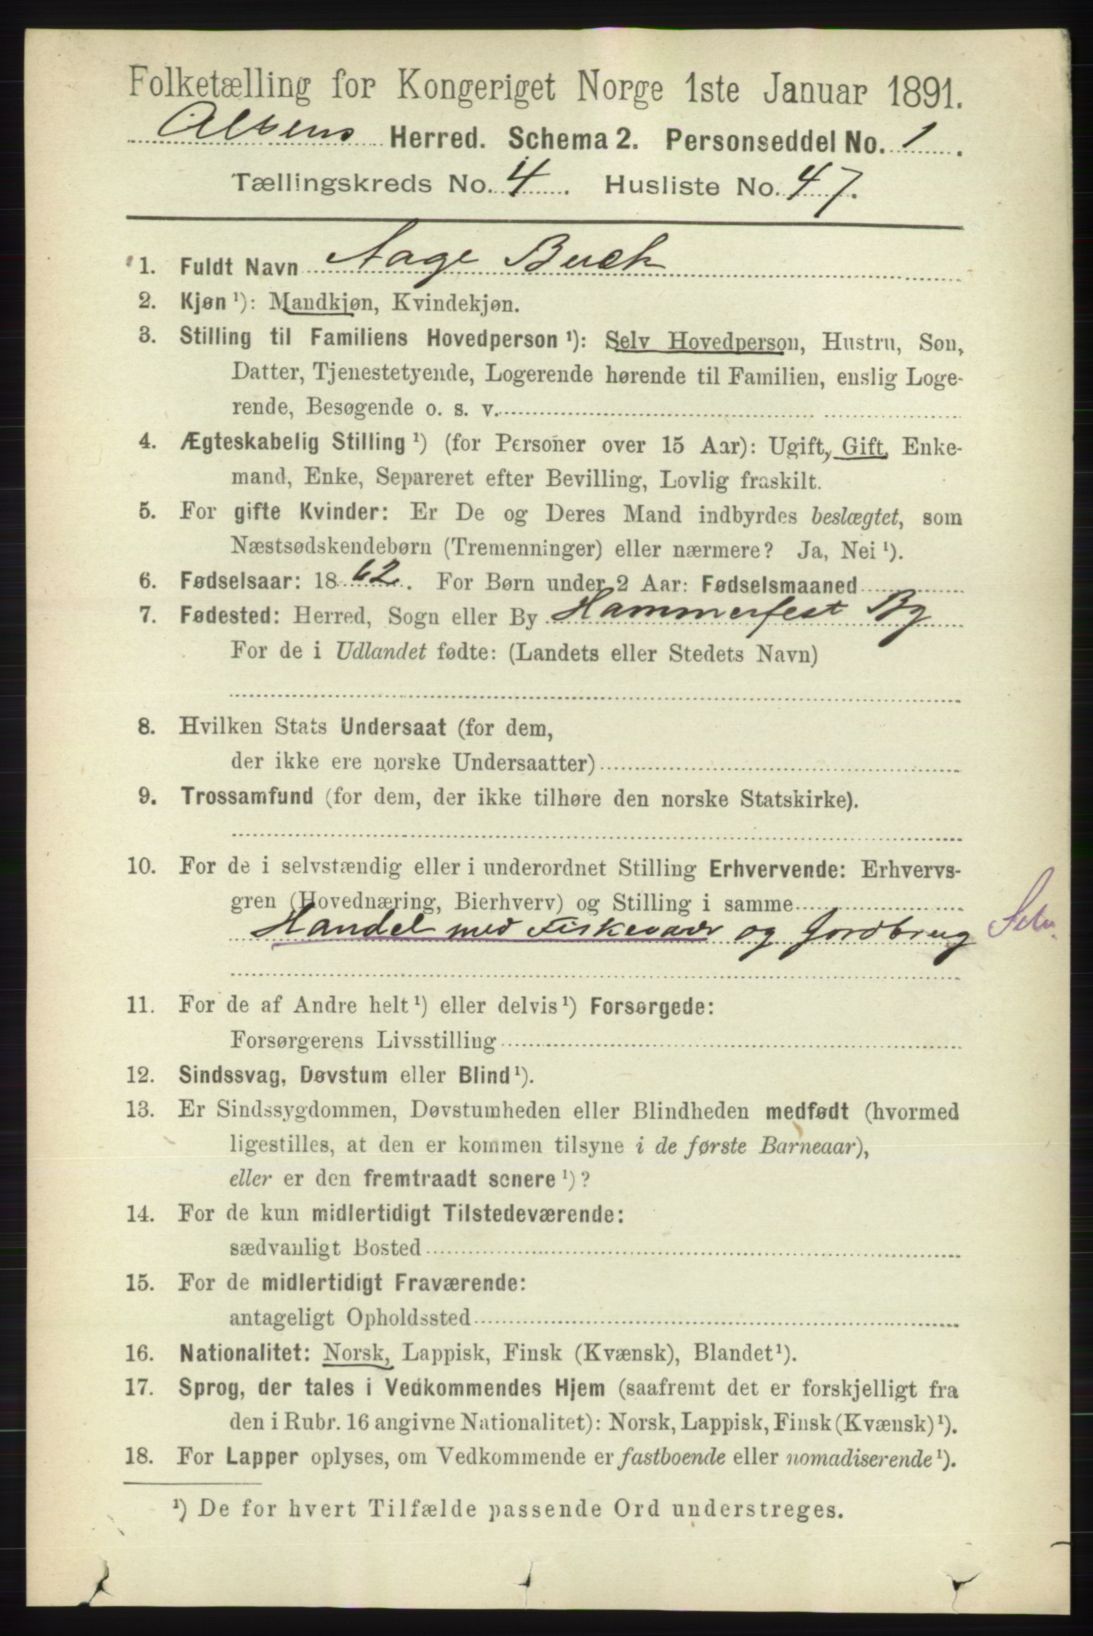 Folketælling for Kongeriget Norge 1ste Januar 1891.
Altens Herred. Schema 2. Personseddel No. 1.
Tællingskreds No. 4. Husliste No. 47.
1. Fuldt Navn Aage Buck
2. Kjøn ¹): Mandkjøn, Kvindekjøn.
3. Stilling til Familiens Hovedperson ¹): Selv Hovedperson, Hustru, Søn,
Datter, Tjenestetyende, Logerende hørende til Familien, enslig Loge-
rende, Besøgende o. s. v.
4. Ægteskabelig Stilling ¹) (for Personer over 15 Aar): Ugift, Gift, Enke-
mand, Enke, Separeret efter Bevilling, Lovlig fraskilt.
5. For gifte Kvinder: Er De og Deres Mand indbyrdes beslægtet, som
Næstsødskendebørn (Tremenninger) eller nærmere? Ja, Nei ¹).
6. Fødselsaar: 1862. For Børn under 2 Aar: Fødselsmaaned
7. Fødested: Herred, Sogn eller By Hammerfest By
For de i Udlandet fødte: (Landets eller Stedets Navn)
8. Hvilken Stats Undersaat (for dem,
der ikke ere norske Undersaatter)
9. Trossamfund (for dem, der ikke tilhøre den norske Statskirke).
10. For de i selvstændig eller i underordnet Stilling Erhvervende: Erhvervs-
gren (Hovednæring, Bierhverv) og Stilling i samme
Handel med Fiskevarer og Jordbrug Selv.
11. For de af Andre helt ¹) eller delvis ¹) Forsørgede:
Forsørgerens Livsstilling
12. Sindssvag, Døvstum eller Blind ¹).
13. Er Sindssygdommen, Døvstumheden eller Blindheden medfødt (hvormed
ligestilles, at den er kommen tilsyne i de første Barneaar),
eller er den fremtraadt senere ¹)?
14. For de kun midlertidigt Tilstedeværende:
sædvanligt Bosted
15. For de midlertidigt Fraværende:
antageligt Opholdssted
16. Nationalitet: Norsk, Lappisk, Finsk (Kvænsk), Blandet ¹).
17. Sprog, der tales i Vedkommendes Hjem (saafremt det er forskjelligt fra
den i Rubr. 16 angivne Nationalitet): Norsk, Lappisk, Finsk (Kvænsk) ¹).
18. For Lapper oplyses, om Vedkommende er fastboende eller nomadiserende ¹).
¹) De for hvert Tilfælde passende Ord understreges.